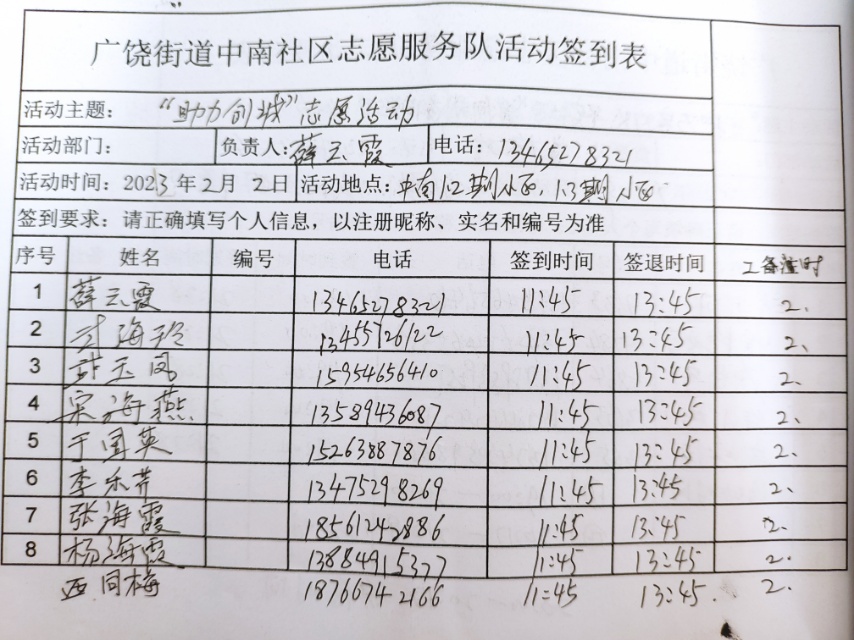 广饶街道中南社区志愿服务队活动签到表
活动主题: “助力创城”志愿活动
活动部门: 负责人: 薛云霞 电话: 13465278321
活动时间: 2023年2月2日 活动地点: 中南1.2期小区,1.3期小区
签到要求: 请正确填写个人信息,以注册昵称、实名和编号为准
序号 姓名 编号 电话 签到时间 签退时间 工时
1 薛云霞 13465278321 11:45 13:45 2.
2 海玲 13455726122 11:45 13:45 2.
3 玉凤 15954656410 11:45 13:45 2.
4 宋海燕 13589436087 11:45 13:45 2.
5 于国英 15263887876 11:45 13:45 2.
6 李乐芹 13475298269 11:45 13:45 2.
7 张海霞 18561242886 11:45 13:45 2.
8 杨海霞 13884915377 11:45 13:45 2.
西同梅 18766742166 11:45 13:45. 2.